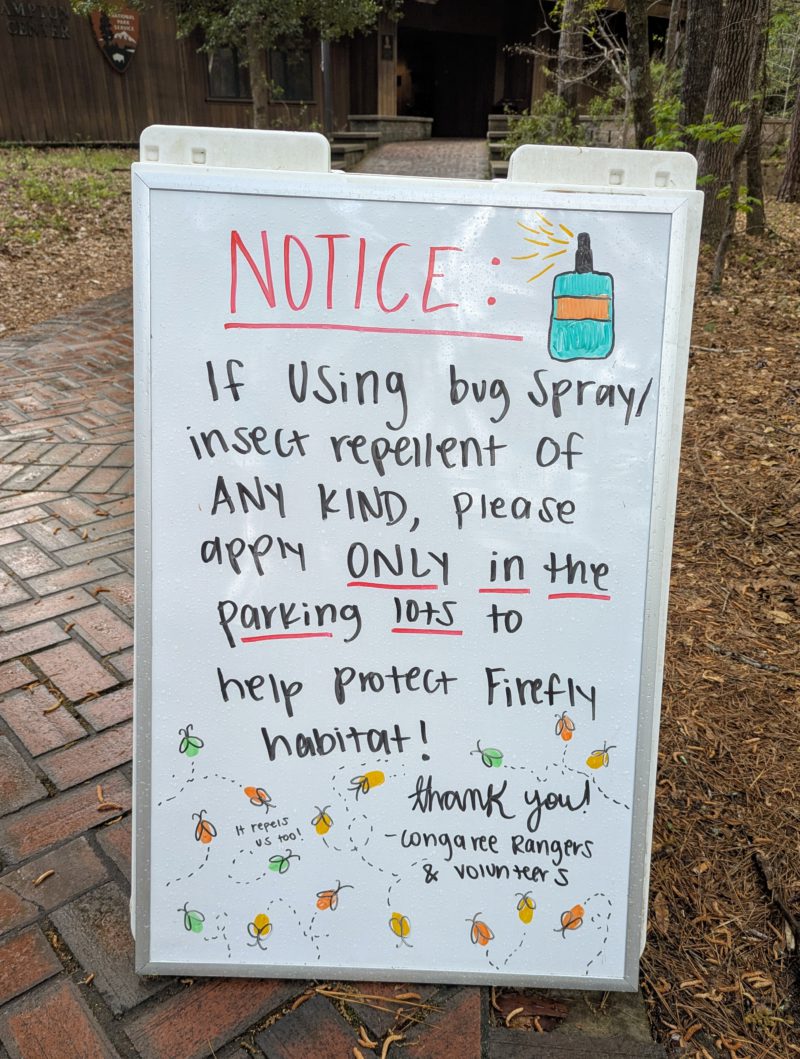 AMPTON
CENTER
NATIONAL
PARK
SERVICE
NOTICE:
If Using bug Spray/
insect repellent of
ANY KIND, please
apply ONLY in the
parking lots to
help protect Firefly
habitat!
thank you!
-Congaree Rangers
& volunteers
It repels
us too!